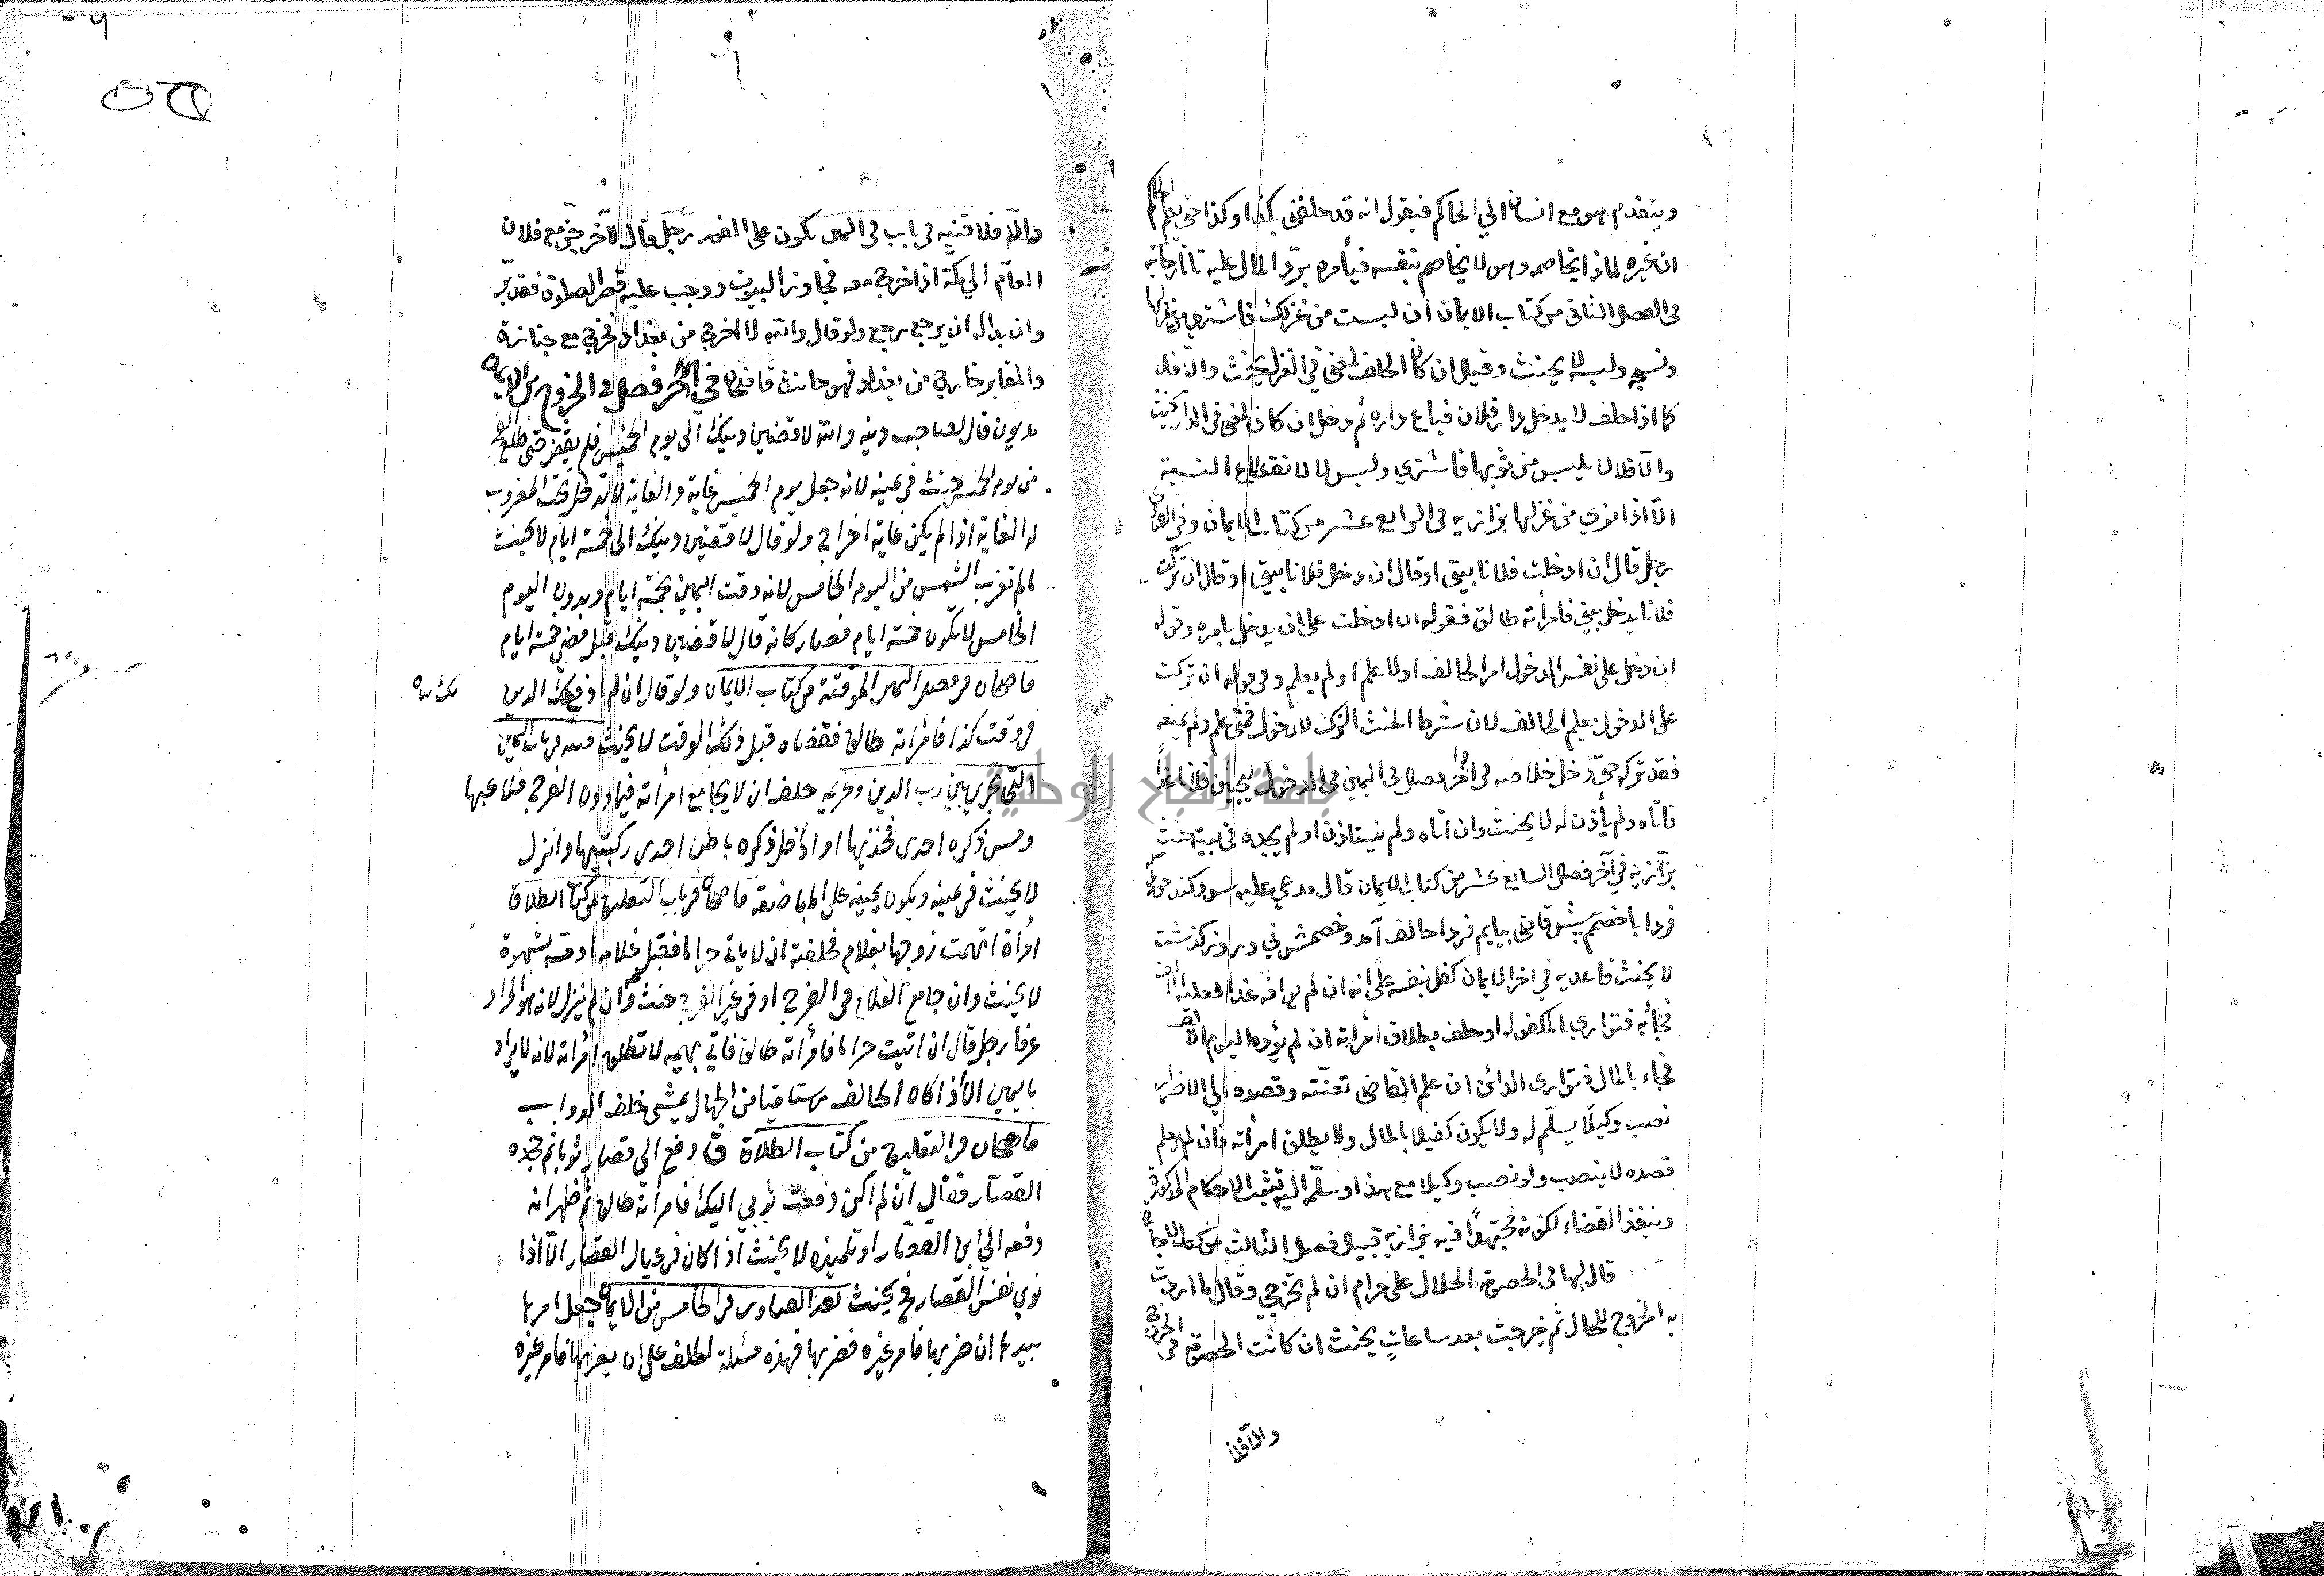 ويتقدم هو مع انسان الي الحاكم فيقول انه قد حلفني بكذا وكذا حتي يعلم الحاكم
ان غيره لماذا يخاصمه وهو لا يخاصم بنفسه فيأمره برد المال عليه تاتارخانيه
في الفصل الثاني من كتاب الايمان ان لبست من غزلك فاشتري من غزلها
ونسجه ولبسه لا يحنث وقيل ان كان الحلف لمعنى في الغزل يحنث والا فلا
كما اذا حلف لا يدخل دار فلان فباع داره ثم دخل ان كان لمعنى في الدار يحنث
والا فلا لا يلبس من ثوبها فاشتري ولبس لا لانقطاع النسبة
الا اذا نوي من غزلها بزازيه في الرابع عشر من كتاب الايمان وفي الفتاوى
رجل قال ان ادخلت فلانا بيتي او قال ان دخل فلانا بيتي او قال ان تركت
فلانا يدخل بيتي فامرأته طالق فقوله ان ادخلت على ان يدخل بامره وقوله
ان دخل على نفس الدخول امر الحالف او لا علم او لم يعلم وفي قوله ان تركت
على الدخول بعلم الحالف لان شرط الحنث الترك للدخول فمتى علم ولم يمنعه
فقد تركه حتى دخل خلاصه في اخر فصل في اليمين في الدخول ليجيئن فلانا غدا
فاتاه ولم يأذن له لا يحنث وان اتاه ولم يستاذن او لم يجده في بيته حنث
بزازية في آخر فصل السابع عشر من كتاب الايمان قال مدعي عليه سوكند خورد كه
فردا با خصم پيش قاضى بيايم فردا حالف آمد وخصمش ني ودر روز كذشت
لا يحنث قاعديه في اخر الايمان كفل بنفسه على انه ان لم يوافه غدا فعليه الف
فجأ به فتواري المكفول له او حلف بطلاق امرأته ان لم يؤده اليوم الالف
فجاء بالمال فتوارى الدائن ان علم القاضي تعنته وقصده الي الاضرار
نصب وكيلا يسلم له ولا يكون كفيلا بالمال ولا يطلق امرأته فان لم يعلم
قصده لا ينصب ولو نصب وكيلا مع هذا وسلمه اليه تثبت الاحكام المذكورة
وينفذ القضاء لكونه مجتهدا فيه بزازية قبيل فصل الثالث من
قال لها في الخصومة الحلال على حرام ان لم تخرجي وقال ما اردت
به الخروج للحال ثم خرجت بعد ساعات يحنث ان كانت الخصومة في الخروج
والا فلا
والا فلا قنيه في باب في اليمين يكون على الفور رجل قال لآخر حتى مع فلان
العام الي مكة اذا خرج معه فجاوز البيوت ووجب عليه قصر الصلوة فقد بر
وان بدا له ان يرجع رجع ولو قال والله لا اخرج من بغداد فخرج مع جنازة
والمقابر خارج من بغداد فهو حانث قاضيخان في آخر فصل في الخروج من الايمان
مديون قال لصاحب دينه والله لاقضين دينك الى يوم الخميس فلم يقض حتى طلع الفجر
من يوم الخميس حنث في يمينه لانه جعل يوم الخميس غاية والغاية لا تدخل تحت المضروب
له الغاية اذا لم يكن غاية اخراج ولو قال لاقضين دينك الى خمسة ايام لا يحنث
ما لم تغرب الشمس من اليوم الخامس لانه وقت اليمين بخمسة ايام وبدون اليوم
الخامس لا يكون خمسة ايام فصار كانه قال لاقضين دينك قبل مضي خمسة ايام
قاضيخان في فصل اليمين الموقتة من كتاب الايمان ولو قال ان لم ادفع لك الدين
في وقت كذا فامرأته طالق فقضاه قبل ذلك الوقت لا يحنث قنيه في باب اليمين
التي تجري بين رب الدين وغريمه حلف ان لا يجامع امرأته فيما دون الفرج فلاعبها
ومس ذكره احدى فخذيها او ادخل ذكره باطن احدى ركبتيها وانزل
لا يحنث في يمينه ويكون يمينه على المباضعة قاضيخان في باب التعليق من كتاب الطلاق
امرأة اتهمت زوجها بغلام فحلفته ان لا ياتي حراما فقبل غلامه او مسه بشهوة
لا يحنث وان جامع الغلام في الفرج او في غير الفرج حنث وان لم ينزل لانه هو المراد
عرفا رجل قال ان اتيت حراما فامرأته طالق فاتي بهيمة لا تطلق امرأته لانه لا يراد
باليمين الا اذا كان الحالف رستاقيا من الجهال يمشي خلف الدواب
قاضيخان في التعليق من كتاب الطلاق دفع الي قصار ثوبا ثم جحده
القصار فقال ان لم اكن دفعت ثوبي اليك فامرأته طالق ثم ظهر انه
دفعه الي ابن القصار او تلميذه لا يحنث اذا كان في عيال القصار الا اذا
نوي نفس القصار فح يحنث نقد الفتاوى في الخامس من الايمان جعل امرها
بيدها ان ضربها فامر غيره فضربها فهذه مسئلة الحلف على ان يضربها فامر غيره